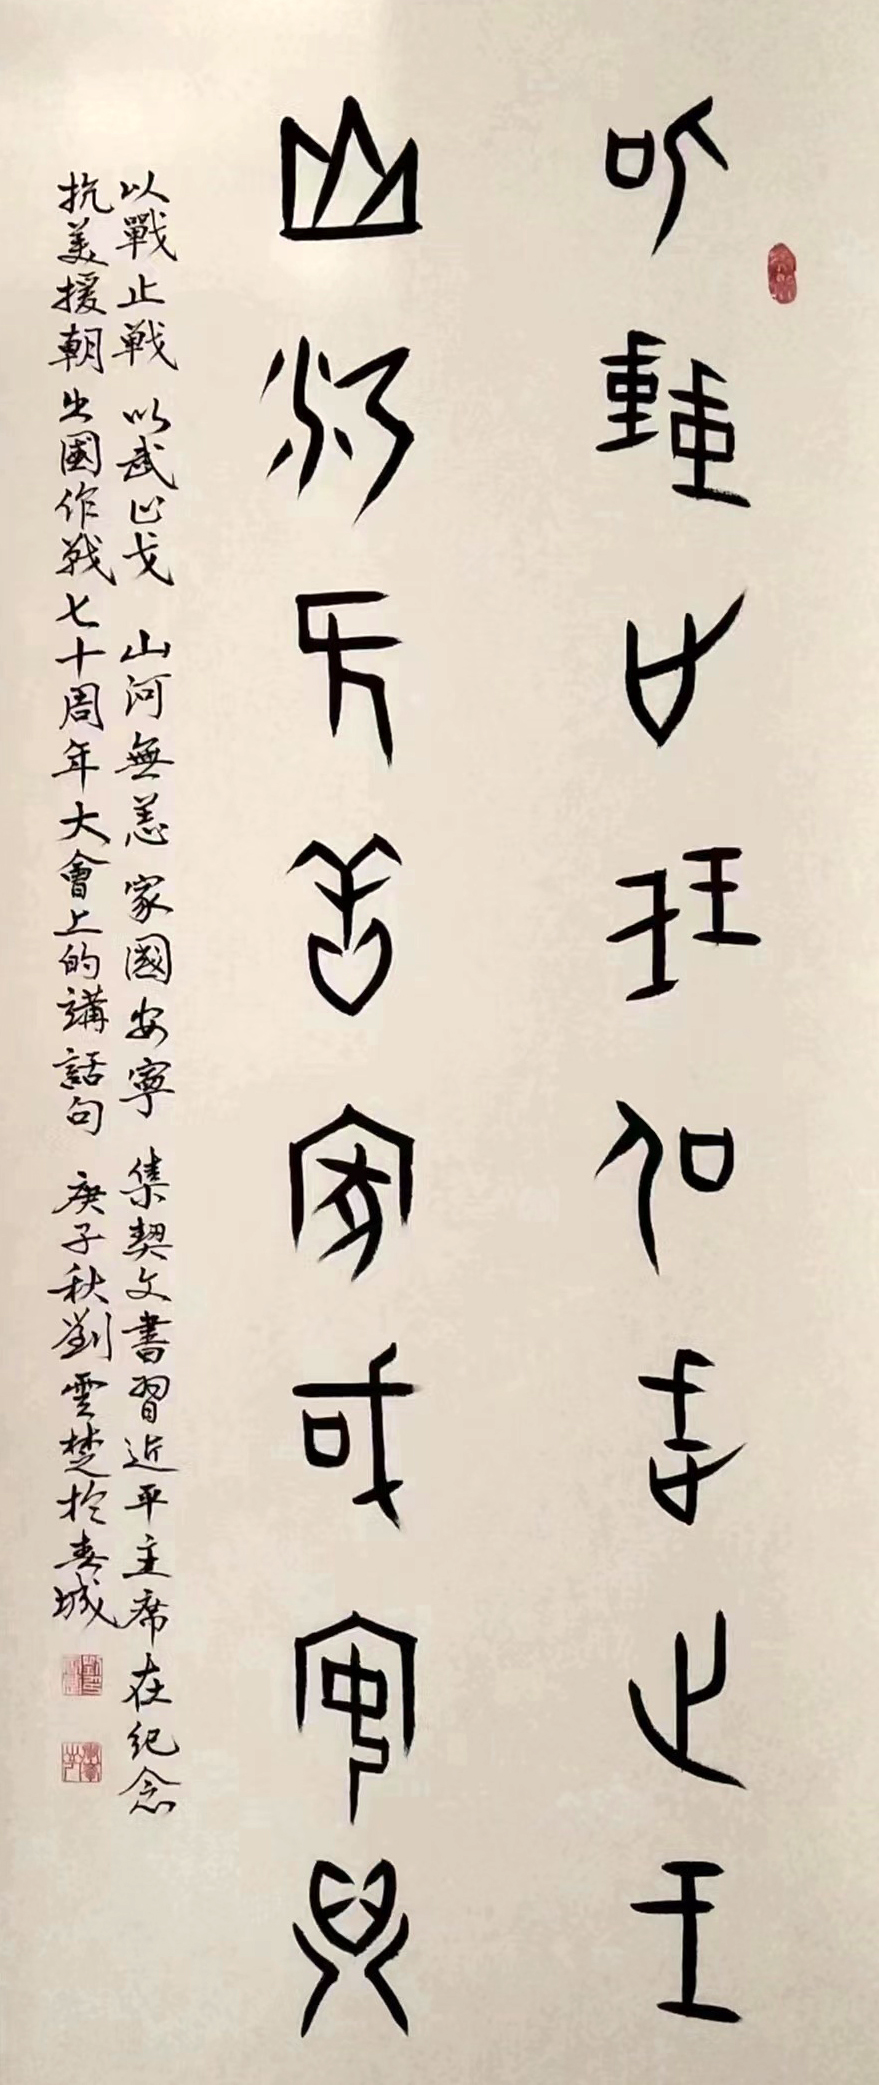 以戰止戰以武止戈
山河無恙家國安寧
以戰止戰 以武止戈 山河無恙 家國安寧 集契文書習近平主席在纪念
抗美援朝出國作戰七十周年大會上的講話句 庚子秋劉雲楚於春城